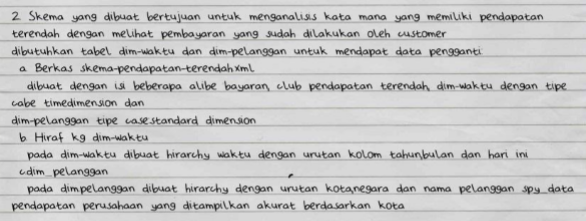 2 Skema yang dibuat bertujuan untuk menganalisis kata mana yang memiliki pendapatan
terendah dengan melihat pembayaran yang sudah dilakukan oleh customer
dibutuhkan tabel dim-waktu dan dim-pelanggan untuk mendapat data pengganti
a Berkas skema-pendapatan-terendah.xml
dibuat dengan isi beberapa alibe bayaran, club pendapatan terendah, dim-waktu dengan tipe
cabe timedimension dan
dim-pelanggan tipe case.standard dimension
b. Hiraf kg dim-waktu
pada dim-waktu dibuat hirarchy waktu dengan urutan kolom tahun,bulan dan hari ini
cdim_pelanggan
pada dim.pelanggan dibuat hirarchy dengan urutan kota,negara dan nama pelanggan spy data
pendapatan perusahaan yang ditampilkan akurat berdasarkan kota